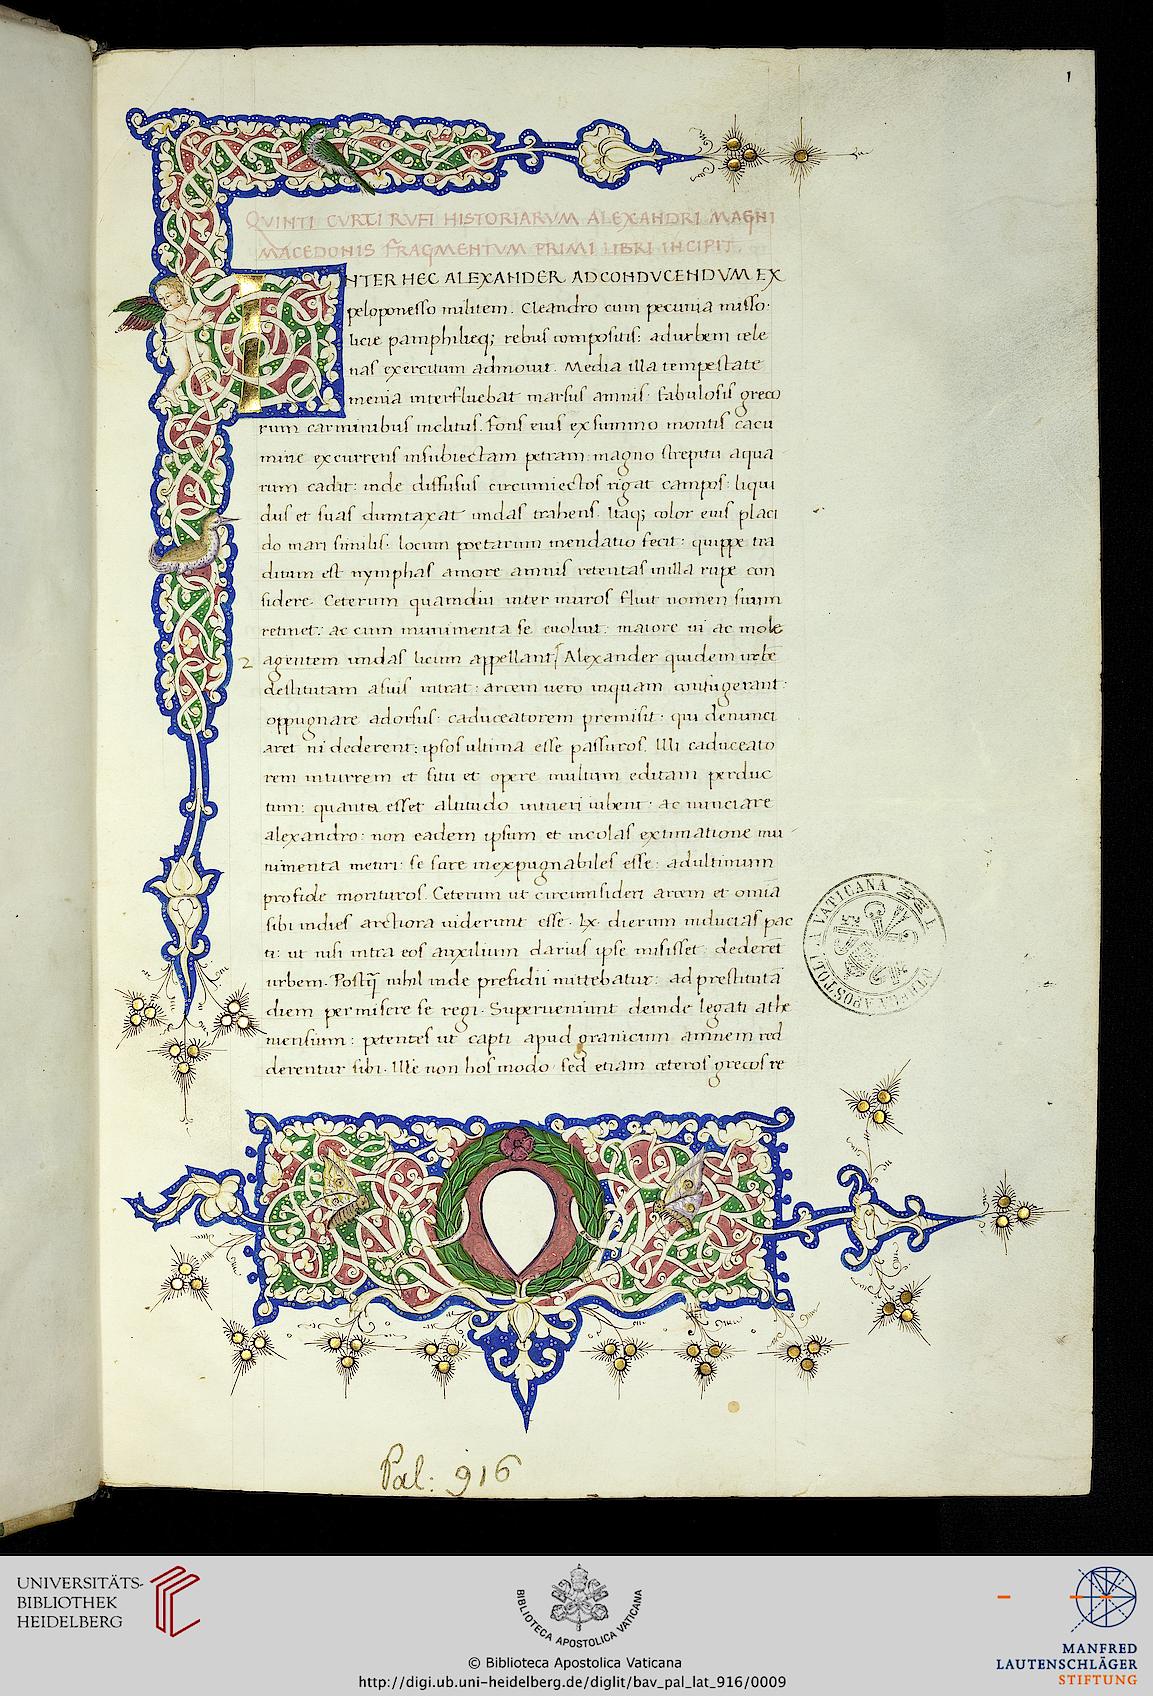 1
QVINTI CVRTI RVFI HISTORIARVM ALEXANDRI MAGNI
MACEDONIS FRAGMENTVM PRIMI LIBRI INCIPIT.
INTER HEC ALEXANDER AD CONDVCENDVM EX
peloponesso militem. Cleandro cum pecunia misso·
licie pamphilieq; rebus compositis: ad urbem cele
nas exercitum admouit. Media illa tempestate
menia interfluebat marsus amnis· fabulosis greco
rum carminibus inclitus. Fons eius ex summo montis cacu
mine excurrens in subiectam petram: magno strepitu aqua
rum cadit: inde diffusus circumiectos rigat campos: liqui
dus et suas dumtaxat undas trahens. Itaq; color eius placi
do mari similis· locum poetarum mendatio fecit: quippe tra
ditum est nymphas amore amnis retentas in illa rupe con
sidere. Ceterum quamdiu inter muros fluit nomen suum
retinet: ac cum munimenta se euoluit: maiore ui ac mole
2 agentem undas licum appellant. Alexander quidem urbē
destitutam a suis intrat: arcem uero inquam confugerant:
oppugnare adorsus· caduceatorem premisit· qui denunci
aret ni dederent: ipsos ultima esse passuros. Illi caduceato
rem in turrem et situ et opere multum editam perduc
tum: quanta esset altitudo intueri iubent· ac nunciare
alexandro: non eadem ipsum et incolas extimatione mu
nimenta metiri: se scire inexpugnabiles esse: ad ultimum
pro fide morituros. Ceterum ut circumsideri arcem et omnia
sibi in dies arctiora uiderunt esse· lx· dierum inducias pac
ti: ut nisi intra eos auxilium darius ipse misisset: dederēt
urbem. Postq̄ nihil inde presidii mittebatur: ad prestitutā
diem permisere se regi. Superueniunt deinde legati athe
niensium: petentes ut capti apud granicum amnem red
derentur sibi. Ille non hos modo· sed etiam ceteros grecos re
VATICANA
Pal: 916
UNIVERSITÄTS-
BIBLIOTHEK
HEIDELBERG
BIBLIOTECA APOSTOLICA VATICANA
MANFRED
LAUTENSCHLÄGER
STIFTUNG
© Biblioteca Apostolica Vaticana
http://digi.ub.uni-heidelberg.de/diglit/bav_pal_lat_916/0009